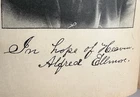 In hope of Heaven.
Alfred Ellmore.